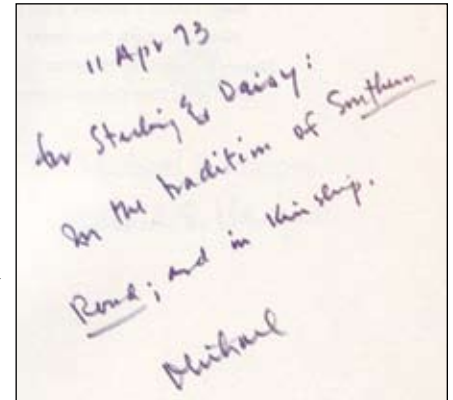 11 Apr 73
for Sterling & Daisy:
In the tradition of Southern
Road; and in kinship.
Michael